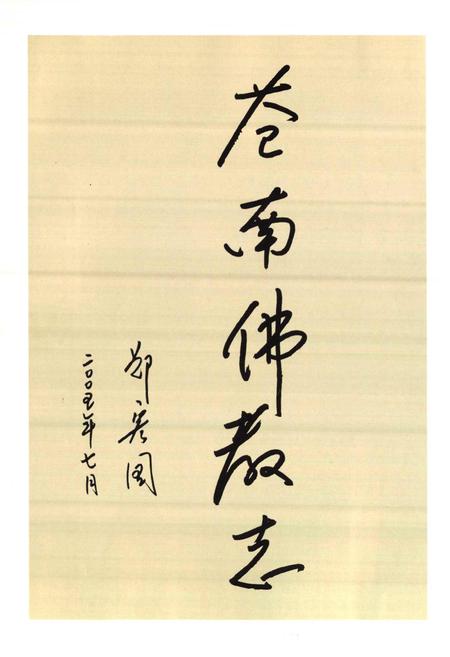 苍南佛教志
郑宏国
二〇〇五年七月